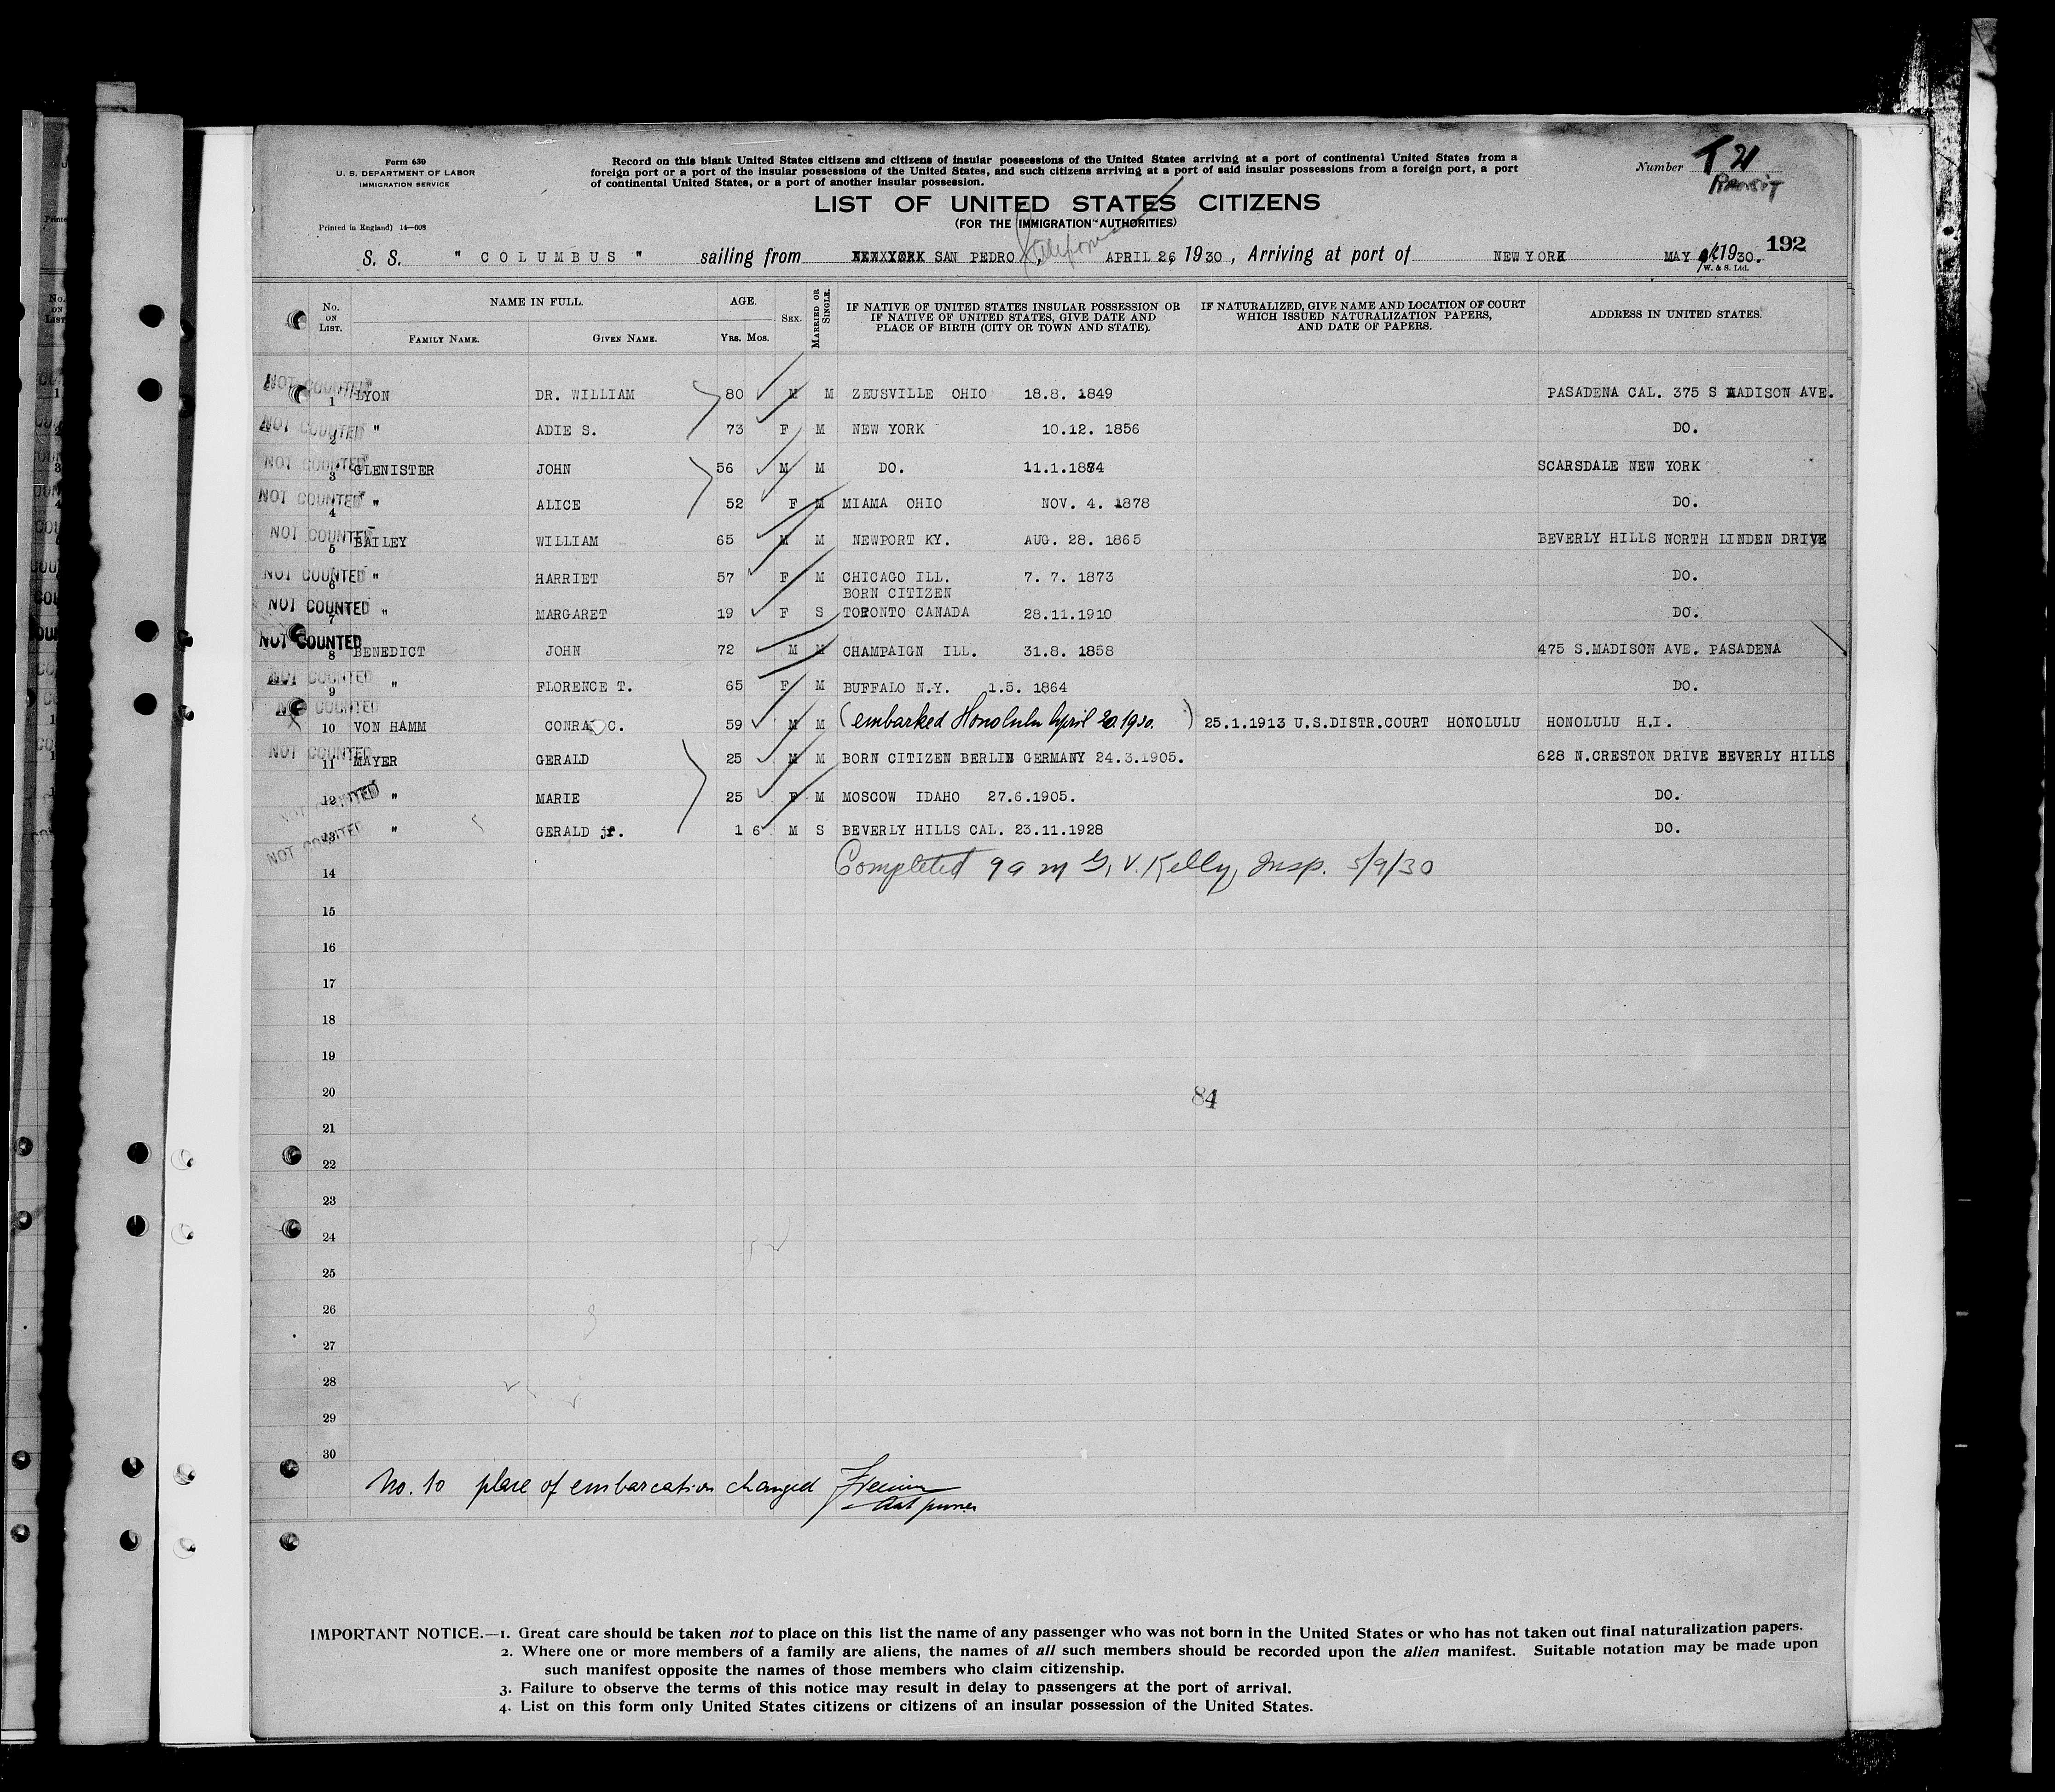 Form 630
U. S. DEPARTMENT OF LABOR
IMMIGRATION SERVICE
Printed in England) 14—608
Record on this blank United States citizens and citizens of insular possessions of the United States arriving at a port of continental United States from a
foreign port or a port of the insular possessions of the United States, and such citizens arriving at a port of said insular possessions from a foreign port, a port
of continental United States, or a port of another insular possession.
Number T 21
192
LIST OF UNITED STATES CITIZENS
(FOR THE IMMIGRATION AUTHORITIES)
S. S. " COLUMBUS " sailing from NEW YORK SAN PEDRO, California APRIL 26, 1930, Arriving at port of NEW YORK MAY 1930.
W. & S. Ltd.
No. ON LIST. NAME IN FULL. FAMILY NAME. GIVEN NAME. AGE. YRS. MOS. SEX. MARRIED OR SINGLE. IF NATIVE OF UNITED STATES INSULAR POSSESSION OR IF NATIVE OF UNITED STATES, GIVE DATE AND PLACE OF BIRTH (CITY OR TOWN AND STATE). IF NATURALIZED, GIVE NAME AND LOCATION OF COURT WHICH ISSUED NATURALIZATION PAPERS, AND DATE OF PAPERS. ADDRESS IN UNITED STATES.
NOT COUNTED 1 LYON DR. WILLIAM 80 M M ZEUSVILLE OHIO 18.8. 1849 PASADENA CAL. 375 S MADISON AVE.
NOT COUNTED 2 " ADIE S. 73 F M NEW YORK 10.12. 1856 DO.
NOT COUNTED 3 GLENISTER JOHN 56 M M DO. 11.1.1874 SCARSDALE NEW YORK
NOT COUNTED 4 " ALICE 52 F M MIAMA OHIO NOV. 4. 1878 DO.
NOT COUNTED 5 BAILEY WILLIAM 65 M M NEWPORT KY. AUG. 28. 1865 BEVERLY HILLS NORTH LINDEN DRIVE
NOT COUNTED 6 " HARRIET 57 F M CHICAGO ILL. 7. 7. 1873 DO.
BORN CITIZEN
NOT COUNTED 7 " MARGARET 19 F S TORONTO CANADA 28.11.1910 DO.
NOT COUNTED 8 BENEDICT JOHN 72 M M CHAMPAIGN ILL. 31.8. 1858 475 S.MADISON AVE. PASADENA
NOT COUNTED 9 " FLORENCE T. 65 F M BUFFALO N.Y. 1.5. 1864 DO.
NOT COUNTED 10 VON HAMM CONRAD C. 59 M M (embarked Honolulu April 20.1930.) 25.1.1913 U.S.DISTR.COURT HONOLULU HONOLULU H.I.
NOT COUNTED 11 MAYER GERALD 25 M M BORN CITIZEN BERLIN GERMANY 24.3.1905. 628 N.CRESTON DRIVE BEVERLY HILLS
NOT COUNTED 12 " MARIE 25 F M MOSCOW IDAHO 27.6.1905. DO.
NOT COUNTED 13 " GERALD jr. 1 6 M S BEVERLY HILLS CAL. 23.11.1928 DO.
14 Completed 9 a m G. V. Kelly, Insp. 5/9/30
15
16
17
18
19
20 84
21
22
23
24
25
26
27
28
29
30
No. 10 place of embarcation changed
IMPORTANT NOTICE.—1. Great care should be taken not to place on this list the name of any passenger who was not born in the United States or who has not taken out final naturalization papers.
2. Where one or more members of a family are aliens, the names of all such members should be recorded upon the alien manifest. Suitable notation may be made upon
such manifest opposite the names of those members who claim citizenship.
3. Failure to observe the terms of this notice may result in delay to passengers at the port of arrival.
4. List on this form only United States citizens or citizens of an insular possession of the United States.